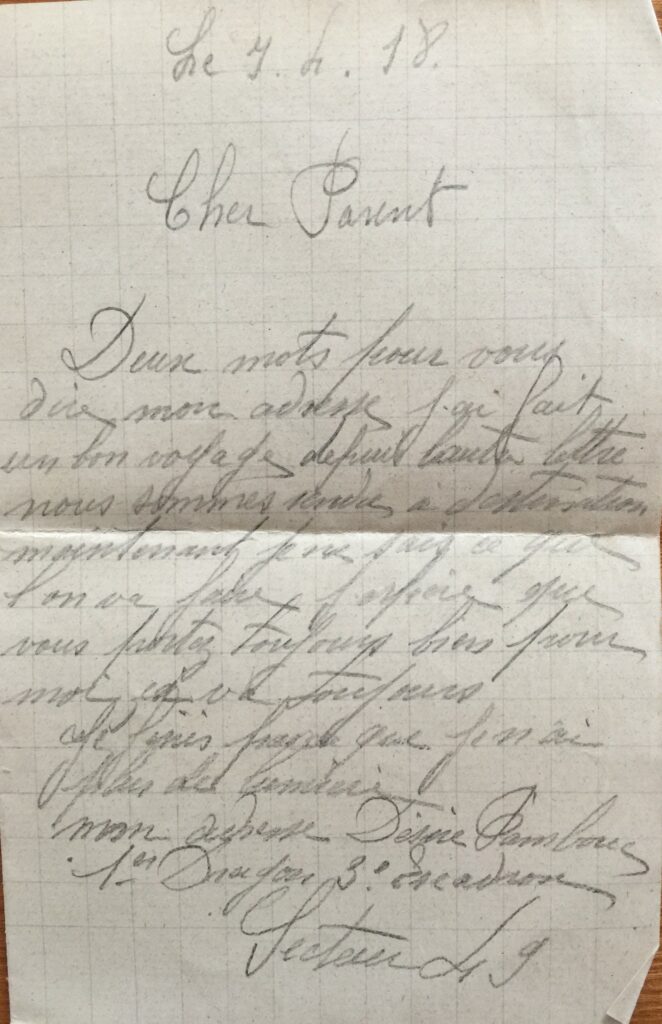 Le 7. 4. 18.
Cher Parent
Deux mots pour vous
dire mon adresse j'ai fait
un bon voyage depuis lautre lettre
nous sommes rendu à destination
maintenant je ne sais ce que
l'on va faire, j'espère que
vous portez toujours bien pour
moi ça va toujours
Je finis parce que je n'ai
plus de lumière
mon adresse Désiré
1er Dragon 3e escadron
Secteur 49